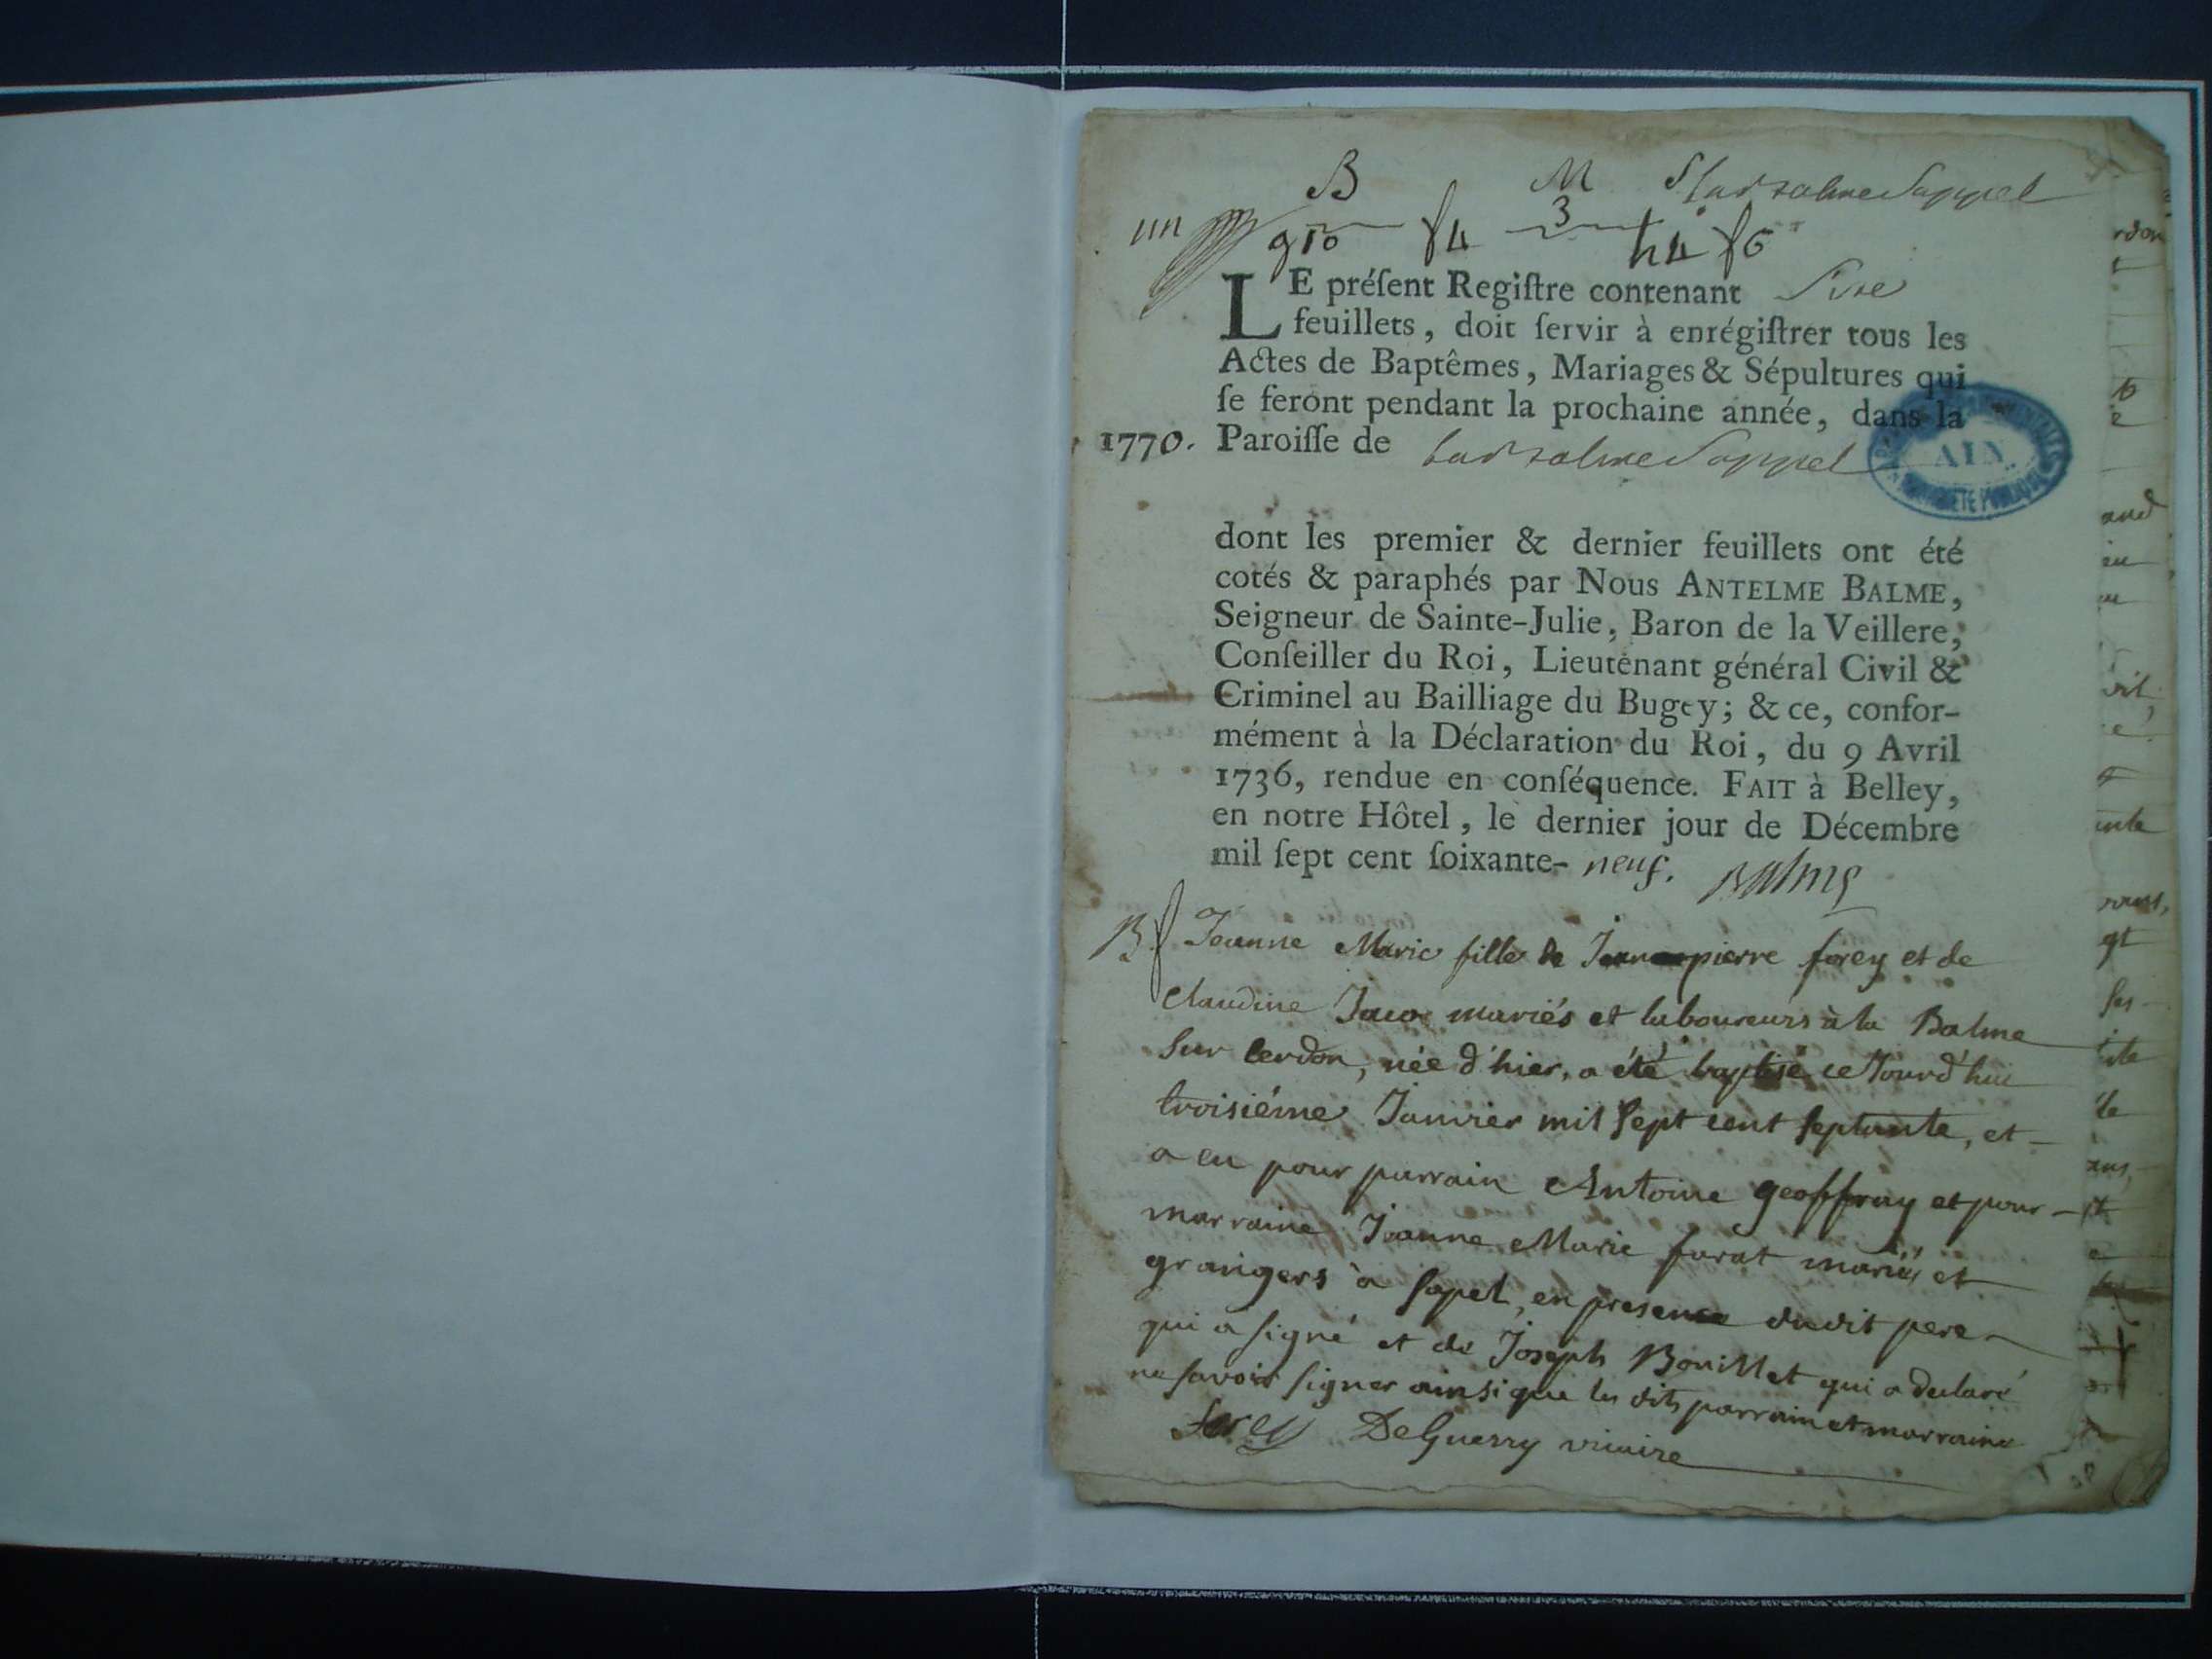 B M S labalme Sappel
un g10 f4 3 h4 f6
LE préſent Regiſtre contenant Sixe
feuillets, doit ſervir à enrégiſtrer tous les
Actes de Baptêmes, Mariages & Sépultures qui
ſe feront pendant la prochaine année, dans la
1770. Paroiſſe de labalme Sappel
AIN
dont les premier & dernier feuillets ont été
cotés & paraphés par Nous ANTELME BALME,
Seigneur de Sainte-Julie, Baron de la Veillere,
Conſeiller du Roi, Lieutenant général Civil &
Criminel au Bailliage du Bugey; & ce, confor-
mément à la Déclaration du Roi, du 9 Avril
1736, rendue en conſéquence. FAIT à Belley,
en notre Hôtel, le dernier jour de Décembre
mil ſept cent ſoixante-neuf. Balme
B Jeanne Marie fille de Jean pierre forey et de
claudine mariés et laboureurs à la Balme
Sur Cerdon, née d'hier, a été baptisé ce Jourd'hui
troisiéme Janvier mil Sept cent Septante, et
a eu pour parrain Antoine geoffray et pour
marraine Jeanne Marie furat mariés et
grangers à Sapel, en presence dudit pere
qui a signé et de Joseph Bouillet qui a declaré
ne savoir signer ainsi que les dits parrain et marraine
forey DeGuerry vicaire